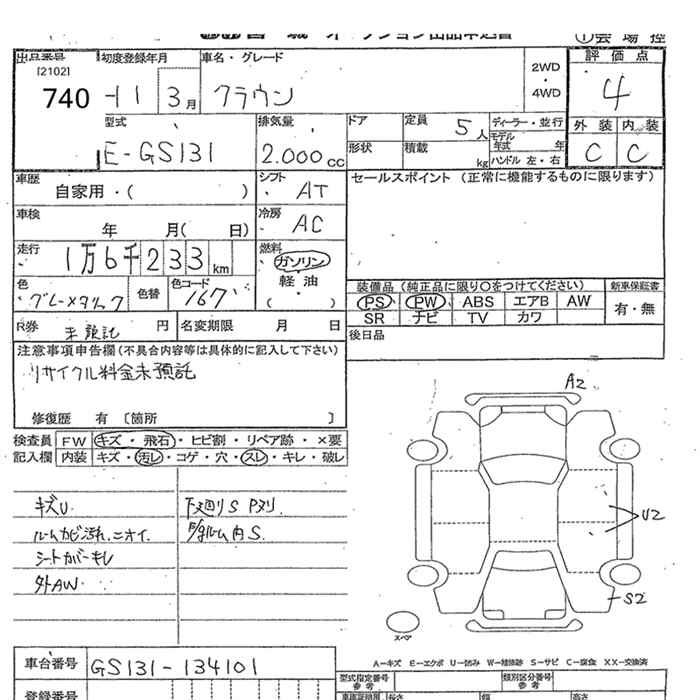 オークション出品申込書 ①会場控
出品番号 初度登録年月 車名・グレード 2WD・4WD 評価点
[2102]
740 11 3月 クラウン 4
型式 排気量 ドア 定員 5人 ディーラー・並行 外装 内装
E-GS131 2.000cc 形状 積載 kg モデル年式 年 ハンドル 左・右 C C
車歴 自家用・( ) シフト AT セールスポイント (正常に機能するものに限ります)
車検 年 月( 日) 冷房 AC
走行 1万6千233km 燃料 ガソリン・軽油・( )
色 グレーメタリック 色替 色コード 167 装備品 (純正品に限り○をつけてください) 新車保証書
PS PW ABS エアB AW 有・無
SR ナビ TV カワ
R券 未預託 円 名変期限 月 日 後日品
注意事項申告欄 (不具合内容等は具体的に記入して下さい)
リサイクル料金未預託
修復歴 有 〔箇所 〕
検査員記入欄 FW キズ・飛石・ヒビ割・リペア跡・×要
内装 キズ・汚レ・コゲ・穴・スレ・キレ・破レ
キズU
ルームカビ汚れ、ニオイ.
シートカバーキレ
外AW
下廻りS Pヌリ.
ルーム内S.
A2
U2
S2
スペア
A-キズ E-エクボ U-凹み W-補修跡 S-サビ C-腐食 XX-交換済
車台番号 GS131-134101
型式指定番号 参考 類別区分番号 参考
登録番号 長さ 幅 高さ